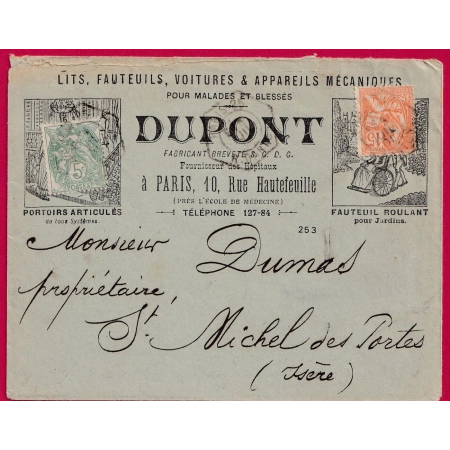 LITS, FAUTEUILS, VOITURES & APPAREILS MÉCANIQUES
POUR MALADES ET BLESSÉS
DUPONT
FABRICANT BREVETÉ S. G. D. G.
Fournisseur des Hôpitaux
à PARIS, 10, Rue Hautefeuille
(PRÈS L'ÉCOLE DE MÉDECINE)
TÉLÉPHONE 127-84
5
15
PORTOIRS ARTICULÉS
de tous Systèmes.
FAUTEUIL ROULANT
pour Jardins.
253
Monsieur Dumas
propriétaire,
St. Michel des Portes
(Isère)